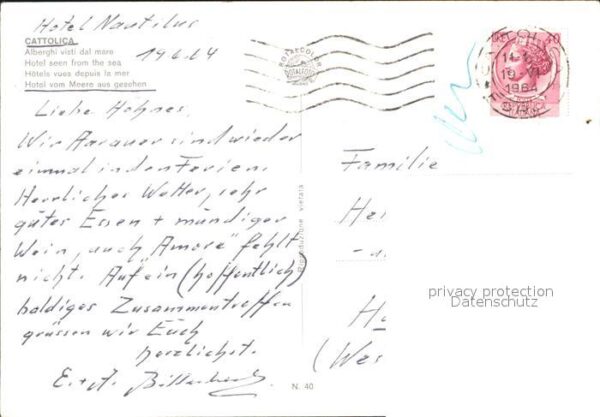 Hotel Nautilus
CATTOLICA
Alberghi visti dal mare
Hotel seen from the sea
Hôtels vues depuis la mer
Hotel vom Meere aus gesehen
19.6.64
ROTALCOLOR
ROTALFOTO
MILANO
19 VI
1964
Liebe Hohnes,
Wir Aarauer sind wieder
einmal in den Ferien.
Herrliches Wetter, sehr
gutes Essen + mundiger
Wein, auch "Amore" fehlt
nicht. Auf ein (hoffentlich)
baldiges Zusammentreffen
grüssen wir Euch
herzlichst.
E. + A.
Riproduzione vietata
N. 40
Familie
He
(Wes
privacy protection
Datenschutz